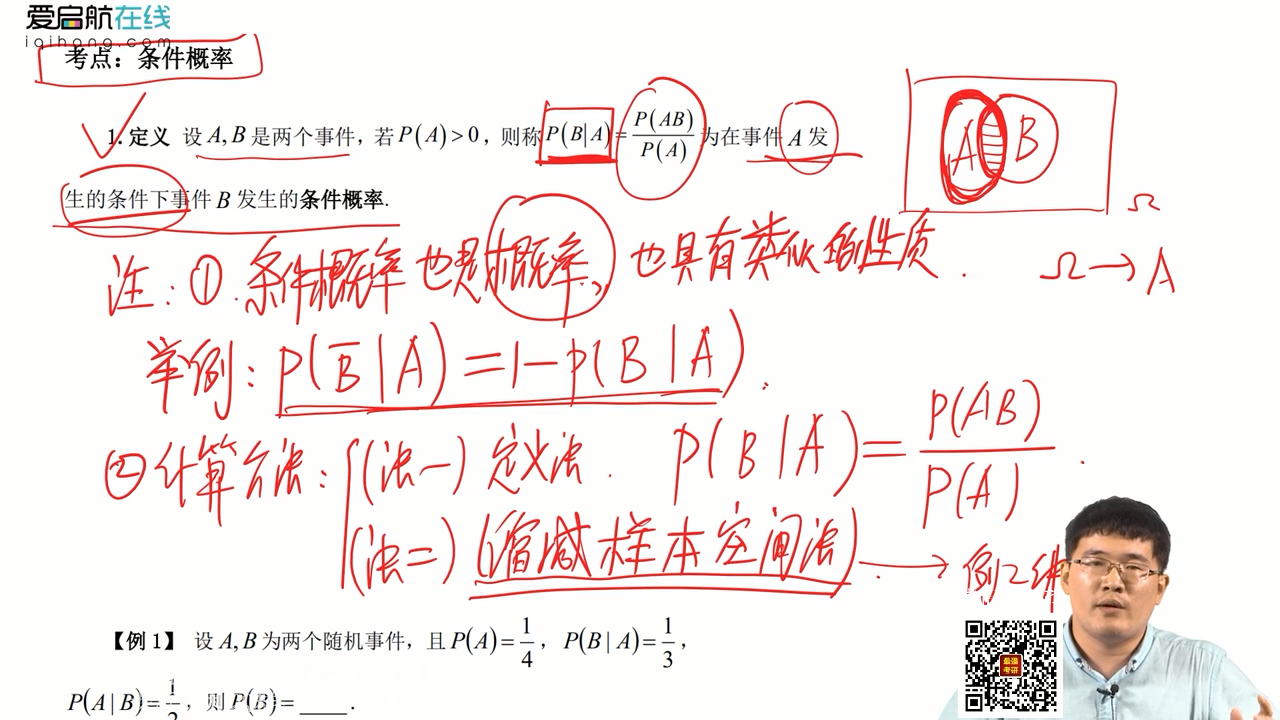 爱启航在线
iqihang.com
考点：条件概率
1. 定义 设 A, B 是两个事件，若 P(A)>0，则称 P(B|A)=P(AB)/P(A) 为在事件 A 发
生的条件下事件 B 发生的条件概率.
A B
Ω
注：① 条件概率也是概率，也具有类似的性质．
Ω→A
举例：P(B̅|A)=1-P(B|A).
② 计算方法：
(法一) 定义法． P(B|A)=P(AB)/P(A).
(法二) (缩减样本空间法). → 例2
【例 1】 设 A, B 为两个随机事件，且 P(A)=1/4，P(B|A)=1/3，
P(A|B)=1/2，则 P(B)=____.
最强考研